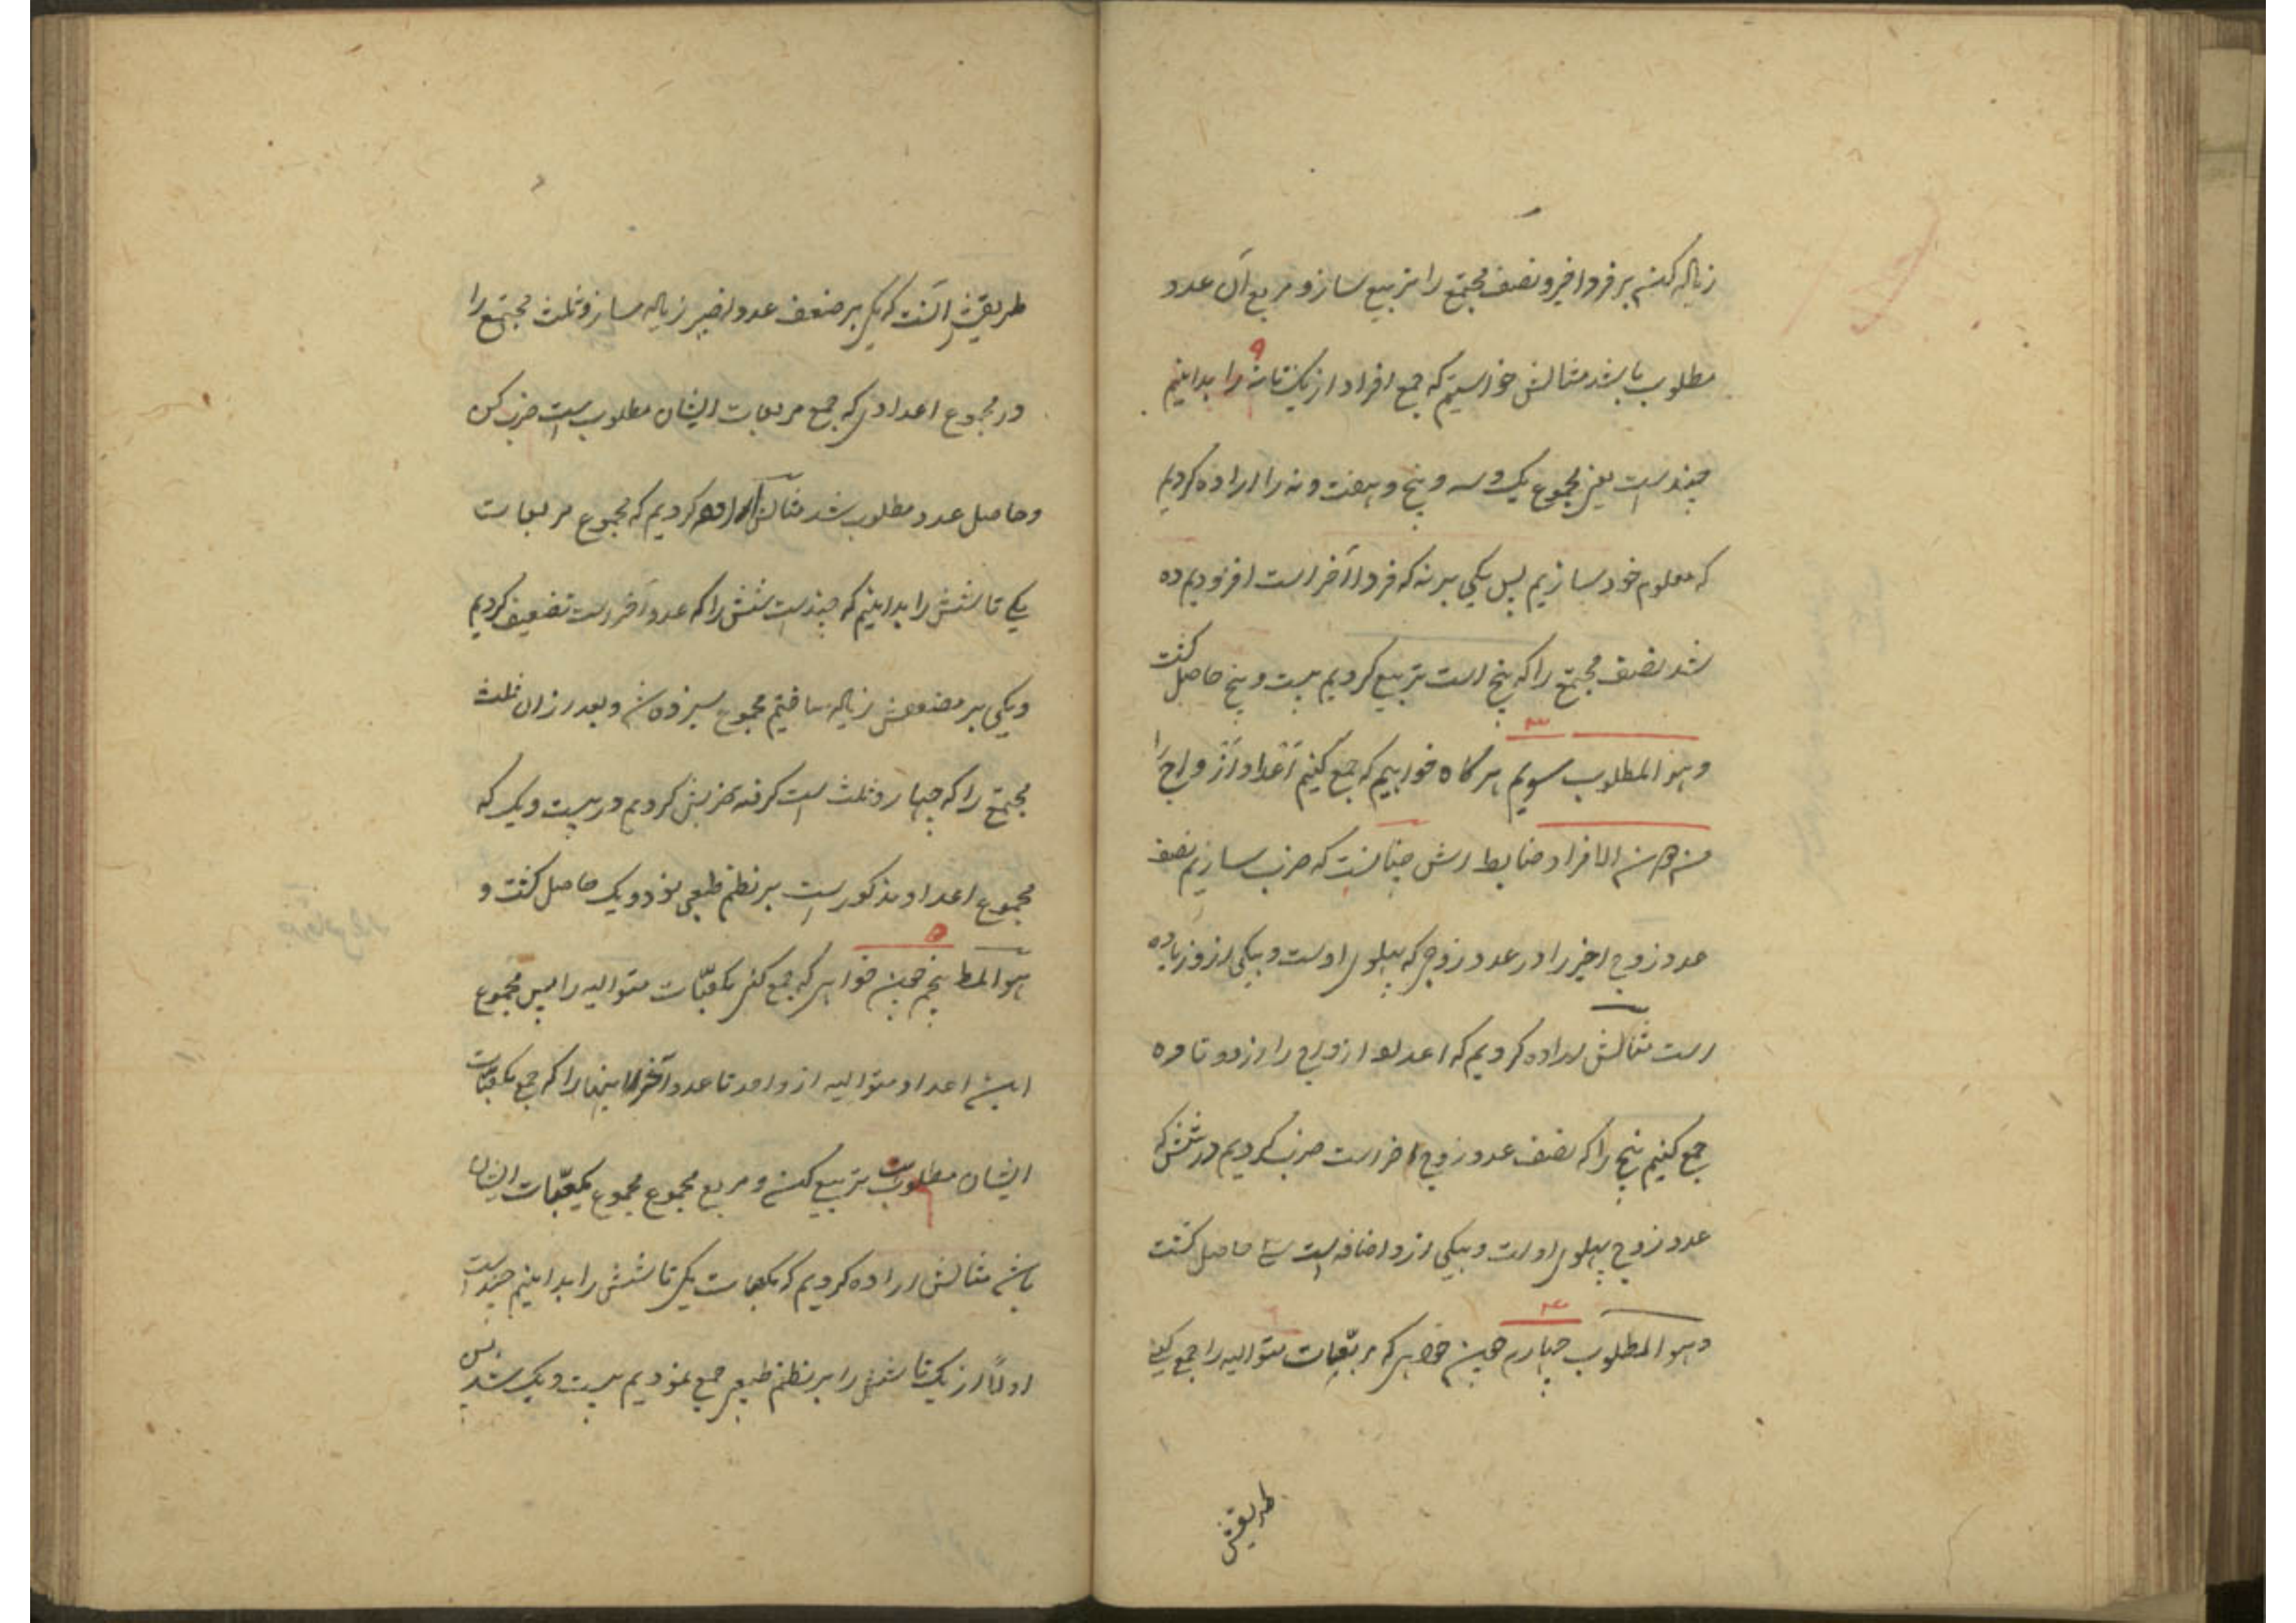 زیاله کنم بر فرد اخیر و نصف مجتمع را تربیع ساز و مربع آن عدد
۹
مطلوب باشد مثالش خواستیم که جمع افراد از یک تا نه را بدانیم
چندست یعنی مجموع یک و سه و پنج و هفت و نه را اراده کردیم
که معلوم خود سازیم پس یکی بر نه که فرد آخر است افزودیم ده
شد نصف مجتمع را که پنج است تربیع کردیم بیست و پنج حاصل گشت
۳
و هو المطلوب سویم هرگاه خواهیم که جمع کنیم اعداد ازواج را
من دون الافراد ضابطه اش چنانست که ضرب سازیم نصف
عدد زوج اخیر را در عدد زوجی که پهلوی اوست و بیکی ازو زیاده
است مثالش اراده کردیم که اعداد ازواج را از دو تا ده
جمع کنیم پنج را که نصف عدد زوج اخر است ضرب کردیم در شش که
عدد زوج پهلوی اوست و بیکی ازو اضافه است سی حاصل گشت
۴
و هو المطلوب چهارم چون خواهی که مربّعات متوالیه را جمع کنی
طریقش
طریقش آنست که یکی بر ضعف عدد اخیر زیاله ساز و ثلث مجتمع را
در مجموع اعدادی که جمع مربعات ایشان مطلوب است ضرب کن
و حاصل عدد مطلوب شد مثالش اراده کردیم که مجموع مربعات
یکی تا شش را بدانیم که چندست شش را که عدد آخر است تضعیف کردیم
و یکی بر مضعفش زیاله ساختیم مجموع سیزده شد و بعد از ان ثلث
مجتمع را که چهار و ثلث است گرفته ضربش کردیم در بیست و یک که
مجموع اعداد مذکور است بر نظم طبعی نود و یک حاصل گشت و
۵
هو المط پنجم چون خواهی که جمع کنی مکعّبات متوالیه را پس مجموع
این اعداد متوالیه از واحد تا عدد آخر اینها را که جمع مکعّبات
ایشان مطلوبست تربیع کن و مربع مجموع مجموع مکعّبات ایشان
باشد مثالش اراده کردیم که مکعبات یکی تا شش را بدانیم چند است
اولاً از یک تا شش را بر نظم طبعی جمع نمودیم بیست و یک شد پس